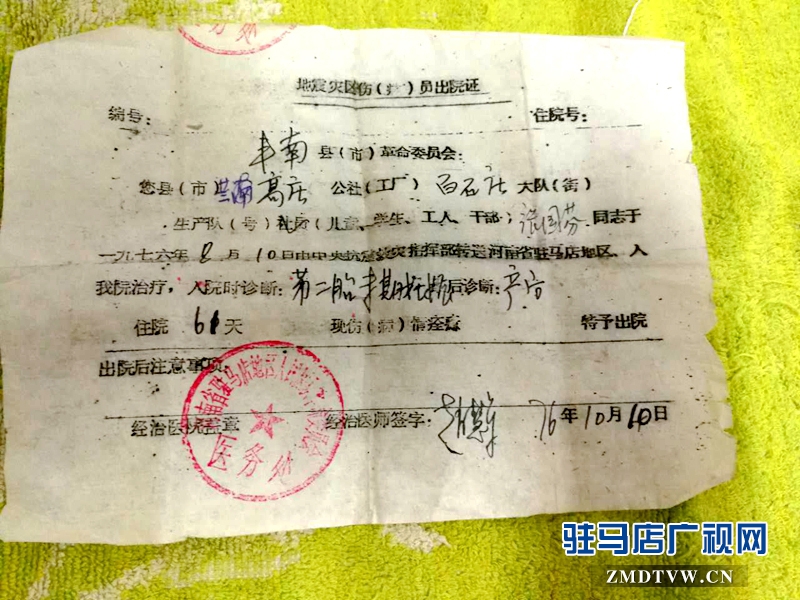 医务组
地震灾区伤(病)员出院证
编号: 住院号:
丰南县(市)革命委员会:
您县(市)兰南高庄公社(工厂)百石庄大队(街)
生产队(号)社员(儿童、学生、工人、干部)张国芬同志于
一九七六年8月10日由中央抗震救灾指挥部转送河南省驻马店地区、入
我院治疗,入院时诊断:第二胎 后诊断:产后
住院61天 现伤(病)情痊愈 特予出院
出院后注意事项:
经治医院盖章 经治医师签字: 76年10月10日
河南省驻马店地区
医务组
驻马店广视网
ZMDTVW.CN